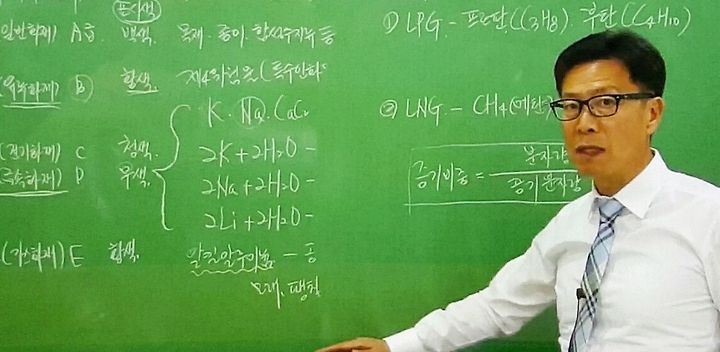 표시색
일반화재) A급. 백색. 목재. 종이. 합성수지류 등
(유류화재) B. 황색. 제4위험물(특수인화
K. Na. CaC₂
(전기화재) C 청색.
(금속화재) D 무색.
2K + 2H₂O -
2Na + 2H₂O -
2Li + 2H₂O -
(가스화재) E 황색. 알킬알루미늄 -
팽창
① LPG. - 프로판(C₃H₈). 부탄(C₄H₁₀)
② LNG. - CH₄(메탄
증기비중 = 분자량
공기 분자량